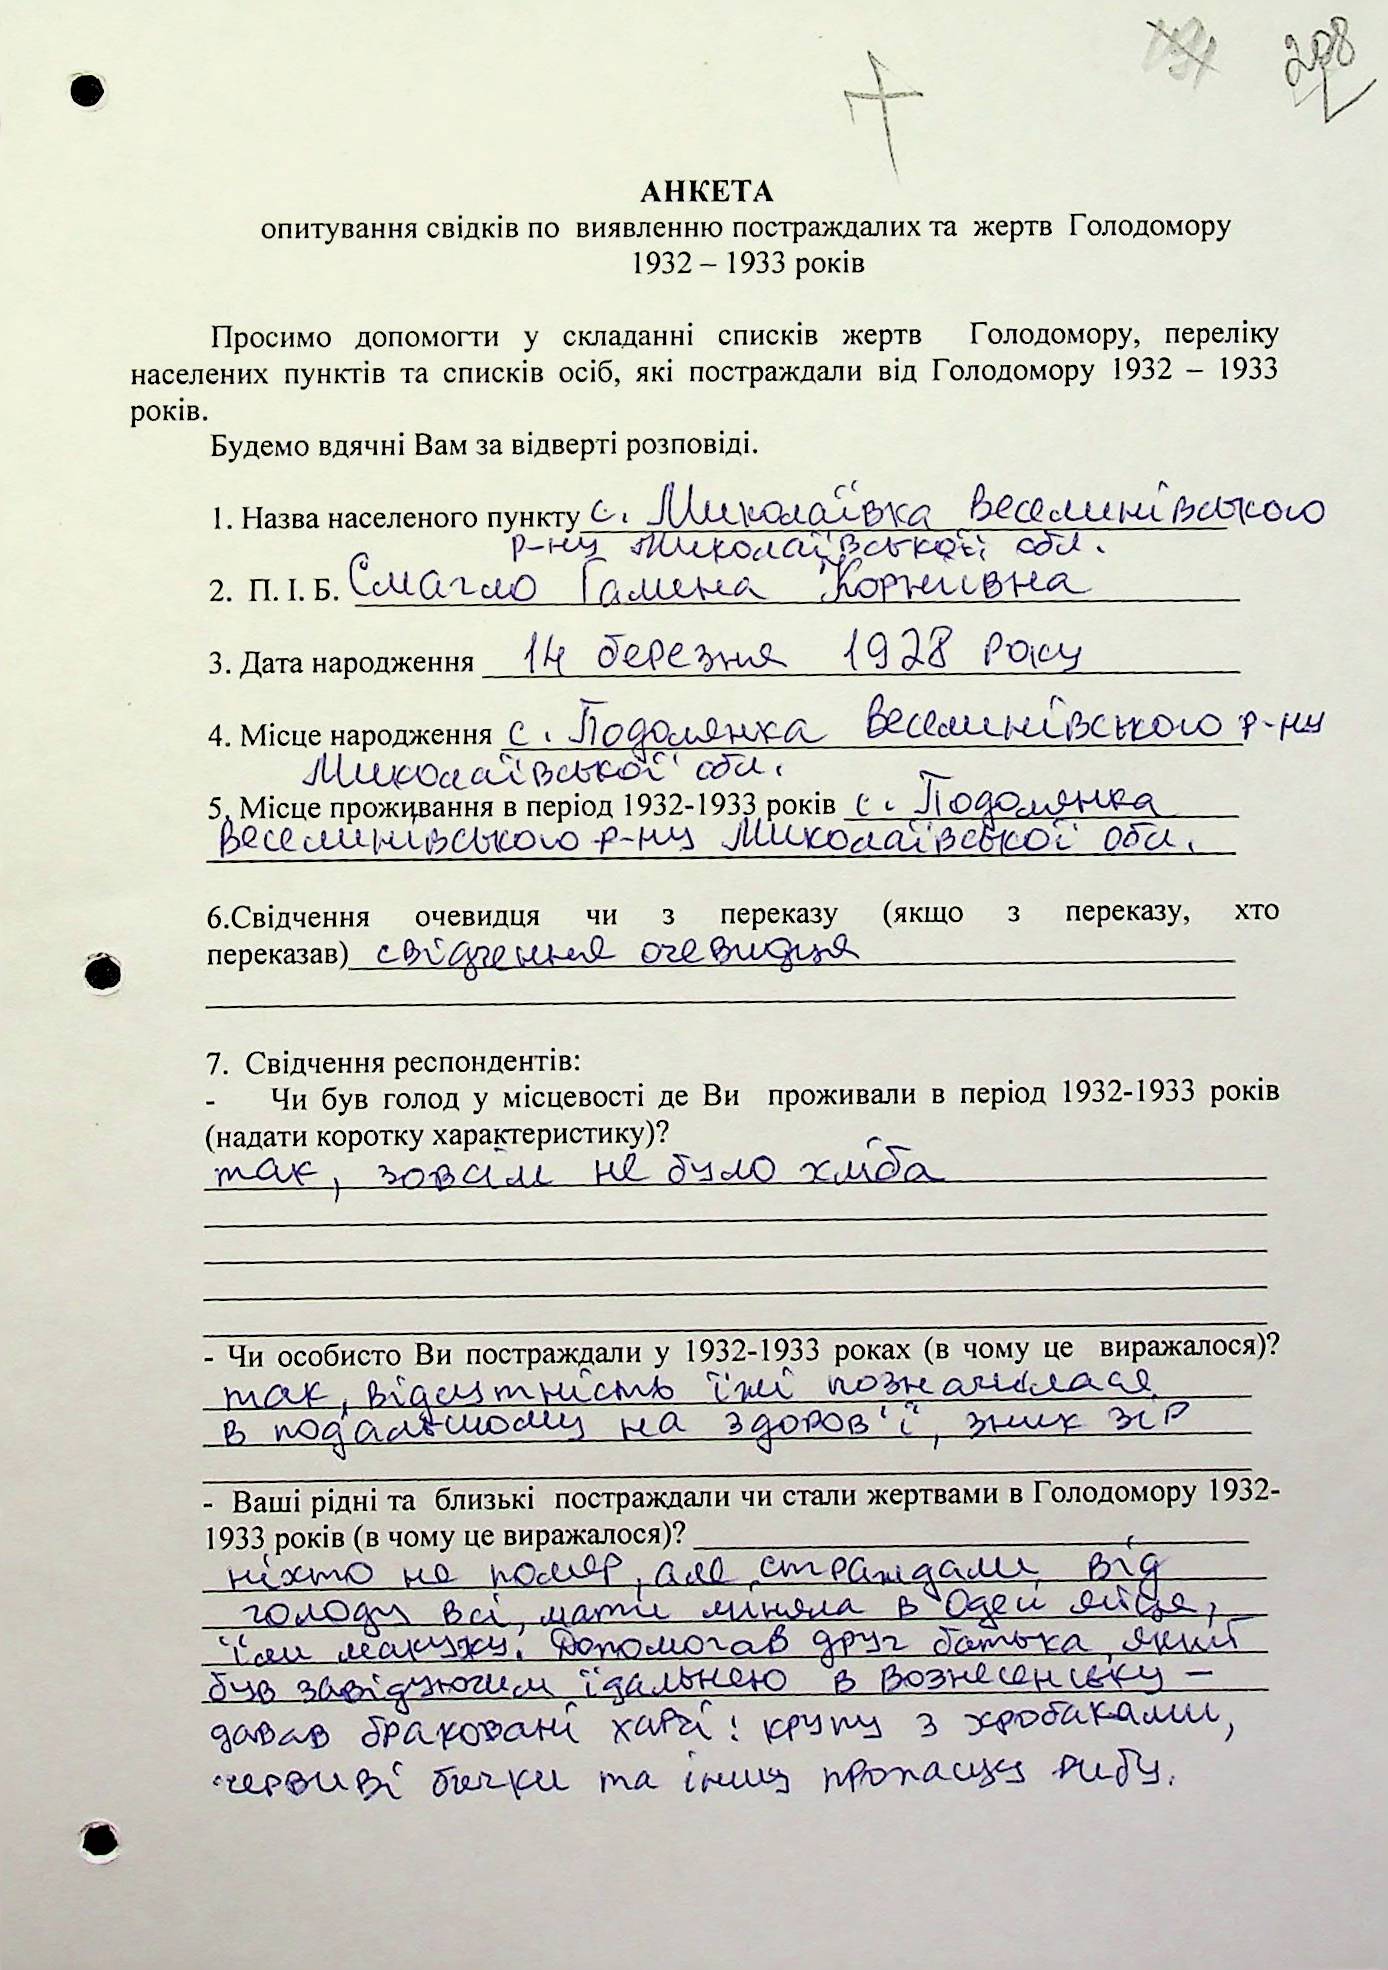 208
АНКЕТА
опитування свідків по виявленню постраждалих та жертв Голодомору
1932 – 1933 років
Просимо допомогти у складанні списків жертв Голодомору, переліку
населених пунктів та списків осіб, які постраждали від Голодомору 1932 – 1933
років.
Будемо вдячні Вам за відверті розповіді.
1. Назва населеного пункту с. Миколаївка Веселинівського
р-ну Миколаївської обл.
2. П. І. Б. Смагло Галина Корніївна
3. Дата народження 14 березня 1928 року
4. Місце народження с. Подолянка Веселинівського р-ну
Миколаївської обл.
5. Місце проживання в період 1932-1933 років с. Подолянка
Веселинівського р-ну Миколаївської обл.
6.Свідчення очевидця чи з переказу (якщо з переказу, хто
переказав) свідчення очевидця
7. Свідчення респондентів:
- Чи був голод у місцевості де Ви проживали в період 1932-1933 років
(надати коротку характеристику)?
так, зовсім не було хліба
- Чи особисто Ви постраждали у 1932-1933 роках (в чому це виражалося)?
так, відсутність їжі позначилася
в подальшому на здоров'ї, зник зір
- Ваші рідні та близькі постраждали чи стали жертвами в Голодомору 1932-
1933 років (в чому це виражалося)?
ніхто не помер, але страждали від
голоду всі, мати міняла в Одесі яйця,
їли макуху. Допомогав друг батька, який
був завідуючим їдальнею в Вознесенську –
давав браковані харчі: крупу з хробаками,
червиві бички та іншу пропащу рибу.